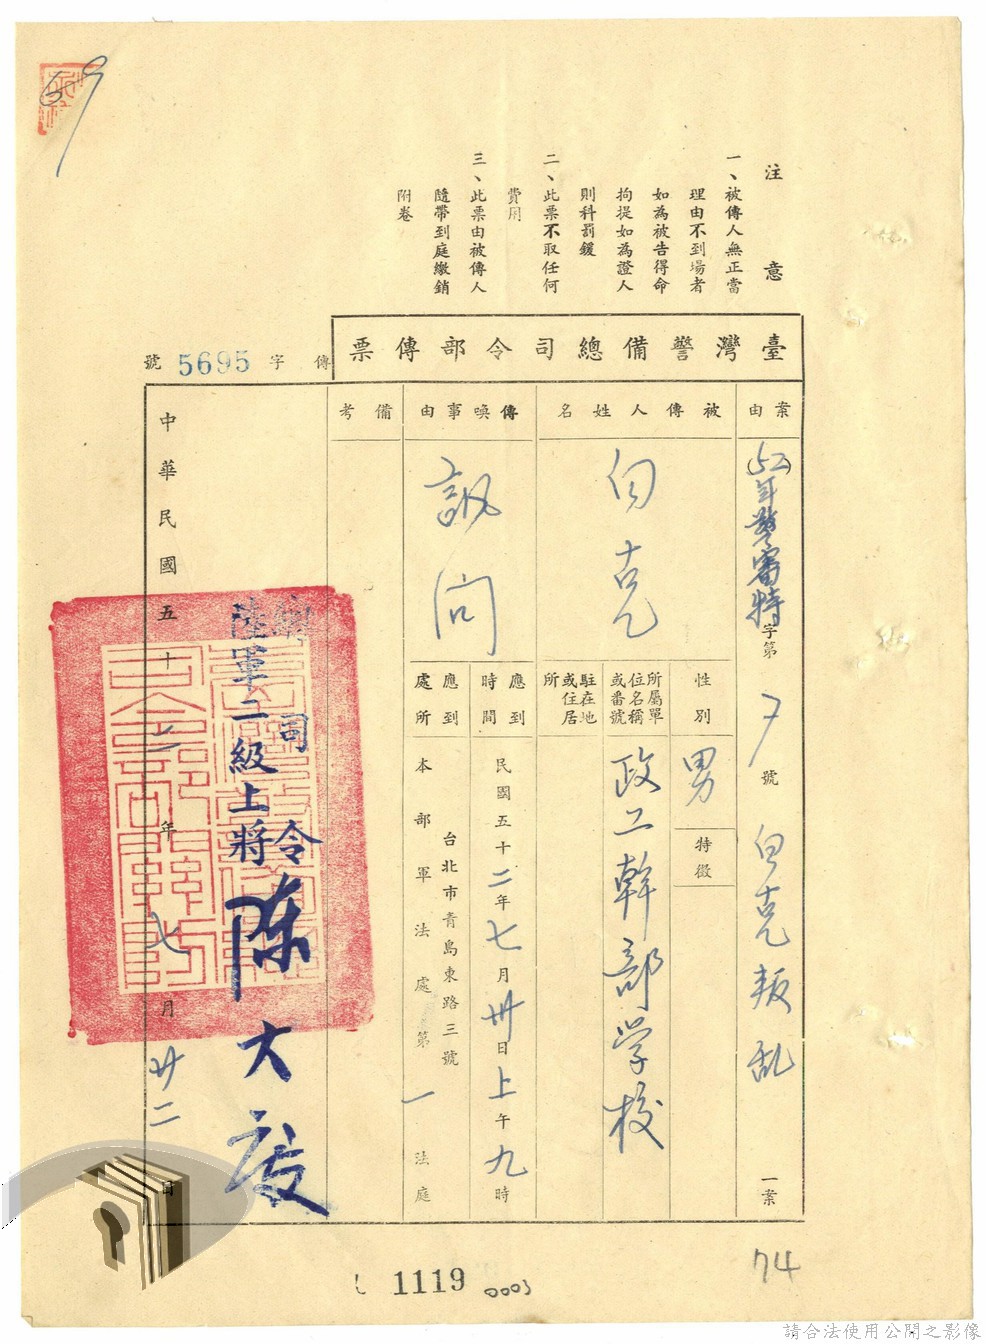 59
注意
一、被傳人無正當
理由不到場者
如為被告得命
拘提如為證人
則科罰鍰
二、此票不取任何
費用
三、此票由被傳人
隨帶到庭繳銷
附卷
臺灣警備總司令部傳票
傳字5695號
案由
(52)年警審特字第 號 白克叛乱一案
被傳人姓名
白克
性別
男
特徵
所屬單位名稱或番號
政工幹部学校
駐在地或住居所
傳喚事由
訊问
應到時間
民國五十二年七月卅日上午九時
應到處所
台北市青島東路三號
本部軍法處第一法庭
備考
總司令
陸軍二級上將
陳大慶
中華民國五十二年七月廿二日
1119
0003
74
請合法使用公開之影像